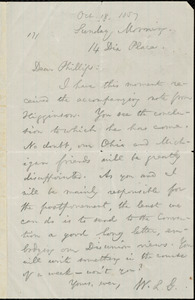 Oct. 18, 1857
Sunday Morning,
14 Dix Place.
Dear Phillips:
I have this moment re-
ceived the accompanying note from
Higginson. You see the conclu-
sion to which he has come.
No doubt, our Ohio and Mich-
igan friends will be greatly
disappointed. As you and I
will be mainly responsible for
the postponement, the least we
can do is to send to the Conven-
tion a good long letter, em-
bodying our Disunion views. You
will write something in the course
of a week — won't you?
Yours, ever,
W. L. G.